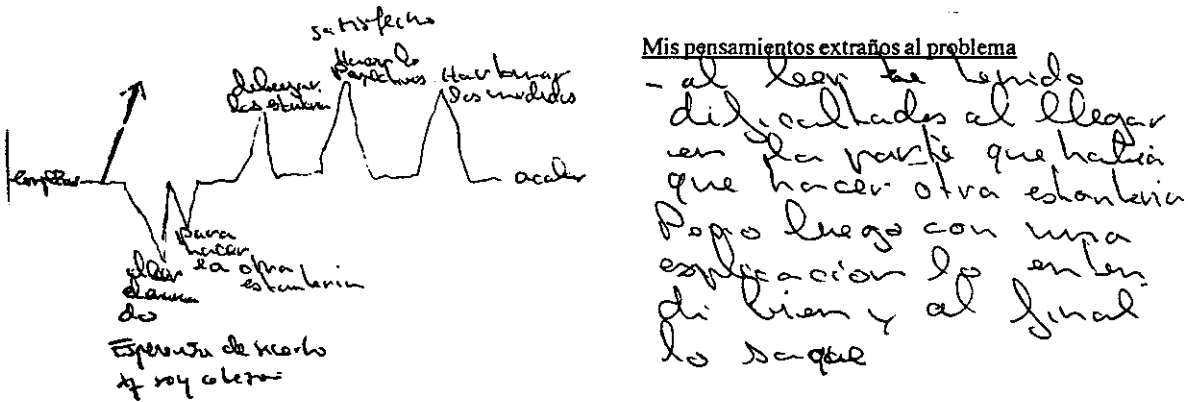 satisfecho
Hacerlo
dibujar
las estanterias
Hacer bien
las medidas
empezar
acabar
para
hacer
la otra
estanteria
al leer
el enuncia
do
Esperanza de
soy
Mis pensamientos extraños al problema
- al leer he tenido
dificultades al llegar
en la parte que habia
que hacer otra estanteria
Pero luego con una
esplicacion lo enten
di bien y al final
lo saque